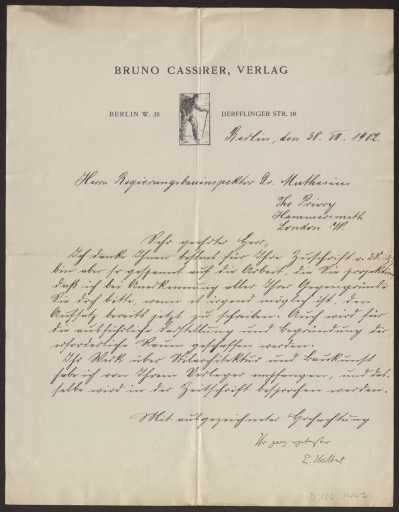 BRUNO CASSIRER, VERLAG
BERLIN W. 35 DERFFLINGER STR. 16
Berlin, den 1902.
Herrn Regierungsbauinspektor Dr. Muthesius
The Priory
Hammersmith
London W.
Sehr geehrter Herr,
Ich danke Ihnen bestens für Ihre Zuschrift v. 28.
bin aber so gespannt auf die Arbeit, die Sie
daß ich bei Anerkennung aller Ihrer Gegengründe
Sie doch bitte, wenn es irgend möglich ist, den
Aufsatz bereits jetzt zu schreiben. Auch wird für
die ausführliche Darstellung und Begründung der
erforderliche Raum geschaffen werden.
Ihr Werk über Stilarchitektur und Baukunst
habe ich von Ihrem Verleger empfangen, und das-
selbe wird in der Zeitschrift besprochen werden.
Mit ausgezeichneter Hochachtung
Ihr ganz ergebener